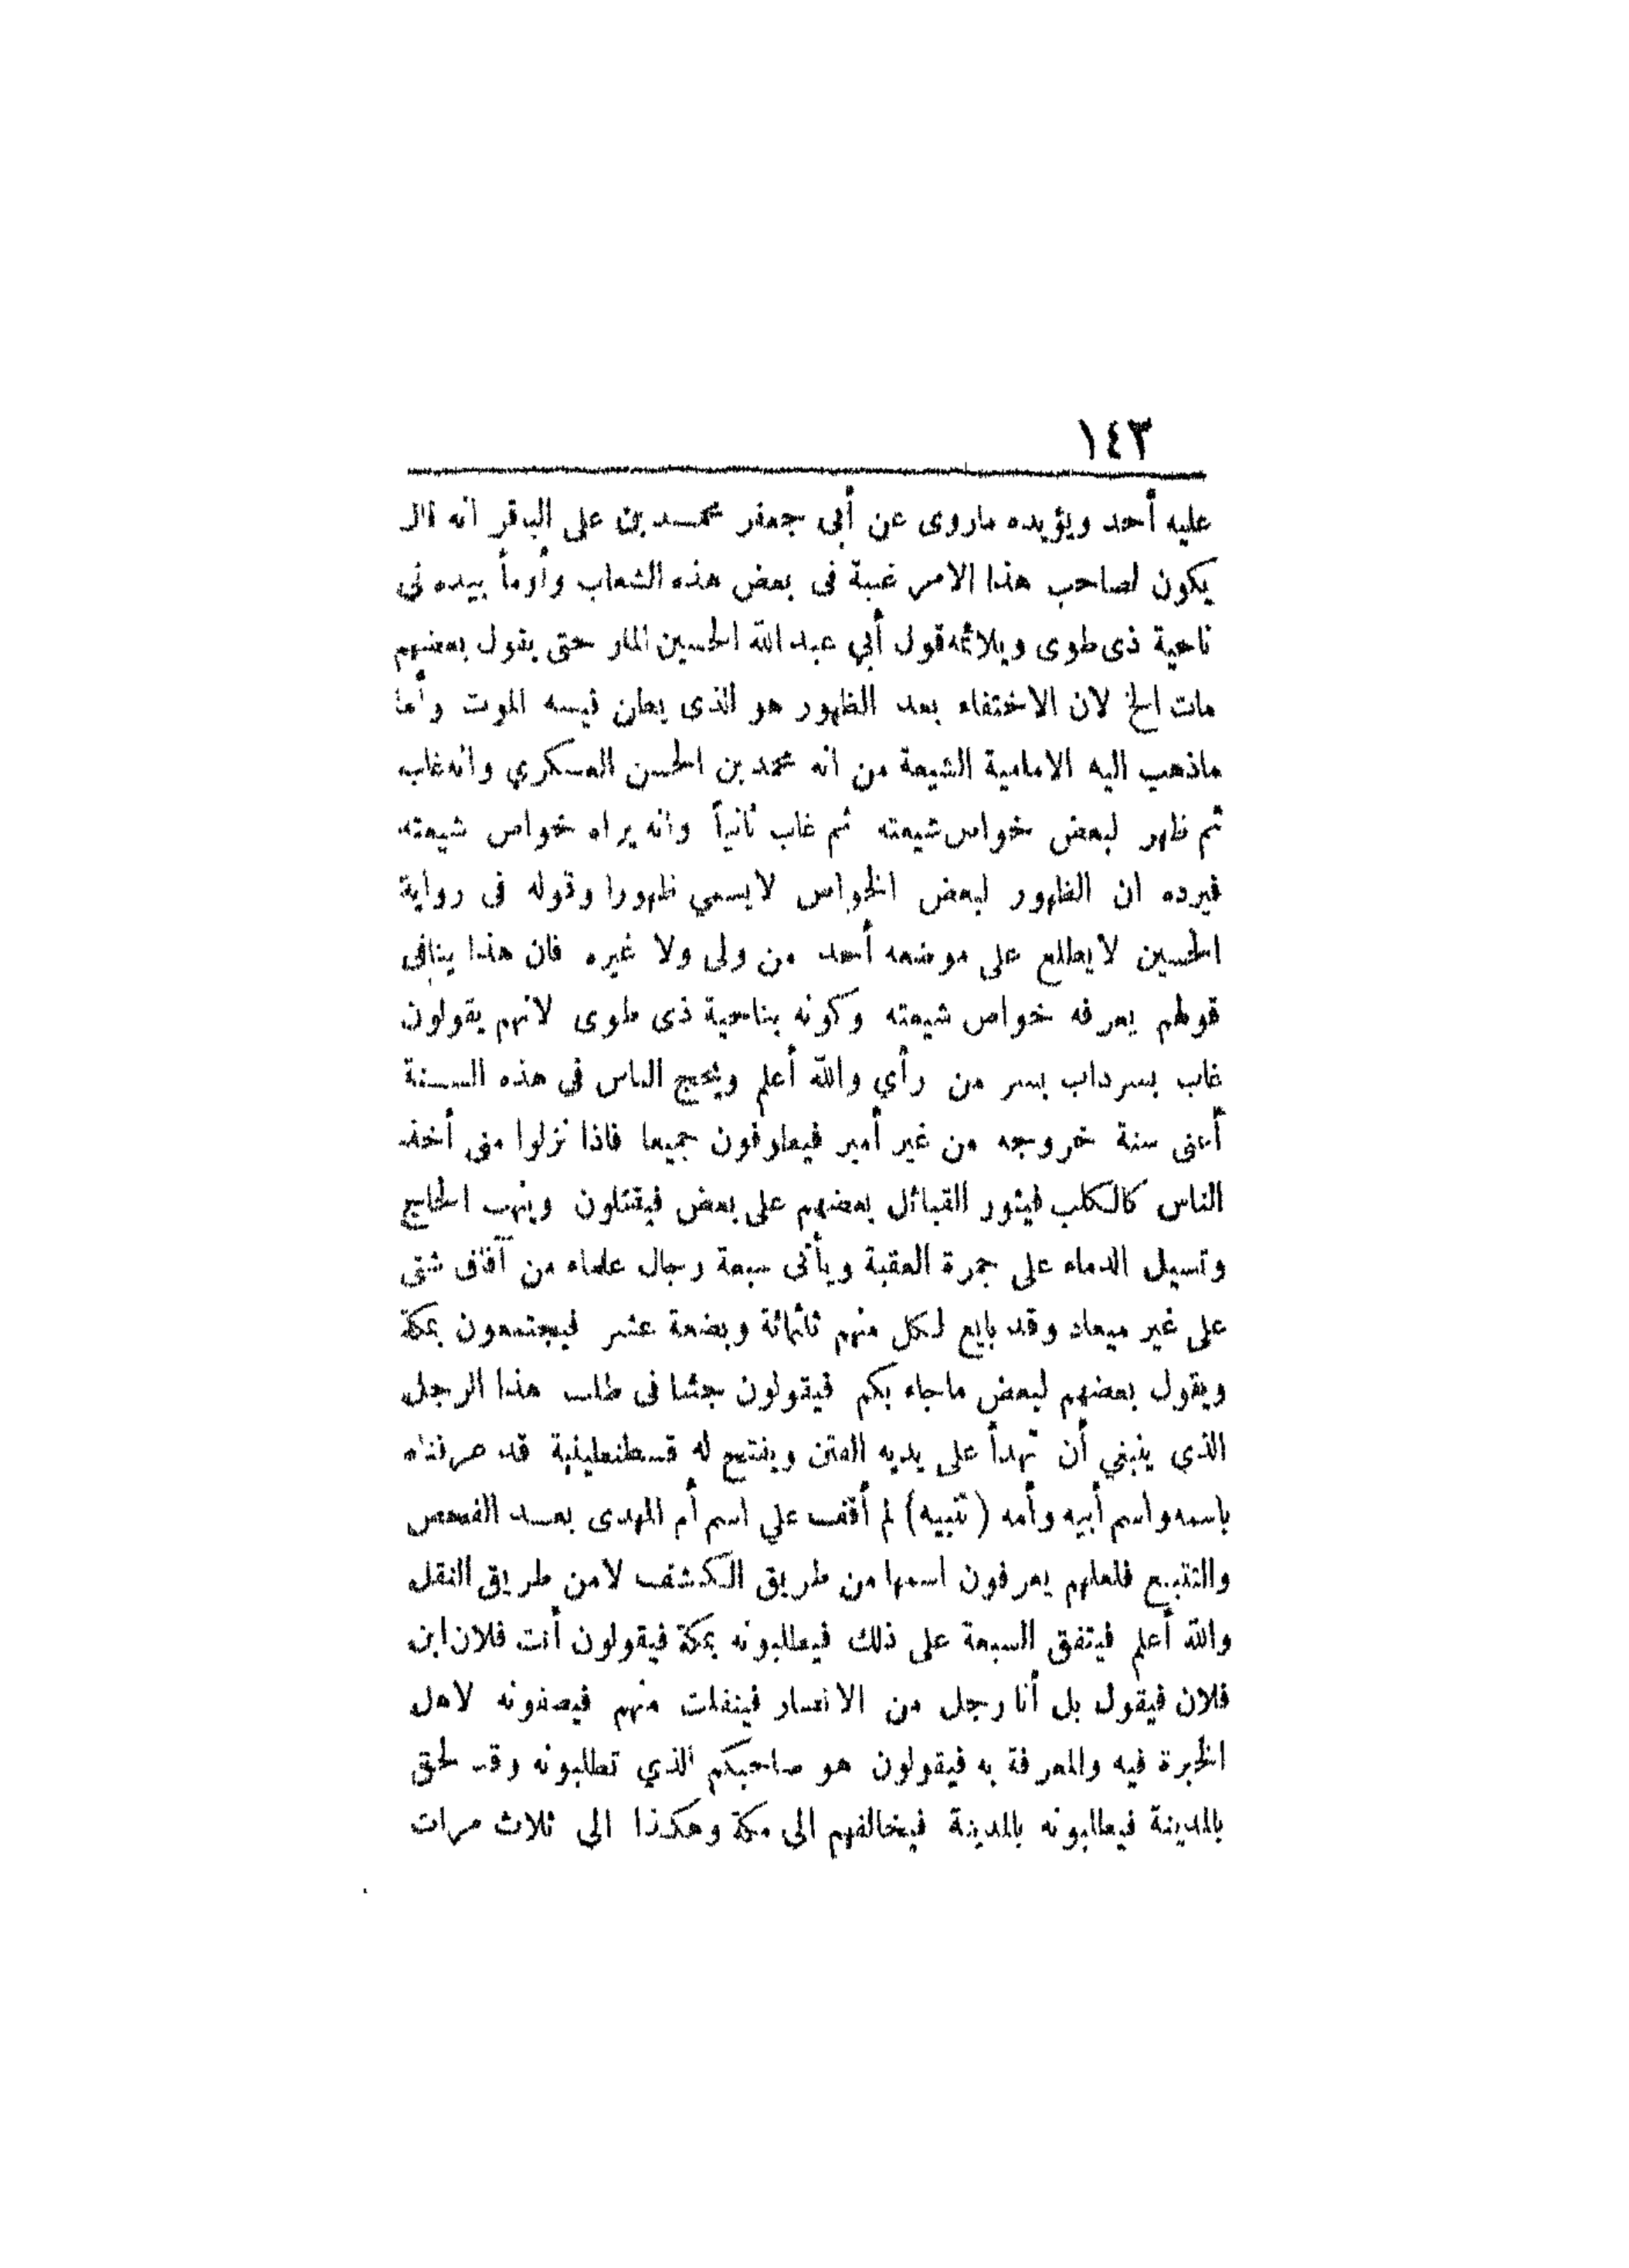 ١٤٣
عليه أحد ويؤيده ماروى عن أبى جعفر محمد بن على الباقر انه قال
يكون لصاحب هذا الامر غيبة فى بعض هذه الشعاب وأومأ بيده فى
ناحية ذى طوى ويلائمه قول أبي عبد الله الحسين المار حتى يقول بعضهم
مات الخ لان الاختفاء بعد الظهور هو الذى يظن فيه الموت وأما
ماذهب اليه الامامية الشيعة من انه محمد بن الحسن العسكري وانه غاب
ثم ظهر لبعض خواص شيعته ثم غاب ثانياً وانه يراه خواص شيعته
فيرده ان الظهور لبعض الخواص لايسمي ظهورا وقوله فى رواية
الحسين لايطلع على موضعه أحد من ولى ولا غيره فان هذا ينافى
قولهم يعرفه خواص شيعته وكونه بناحية ذى طوى لانهم يقولون
غاب بسرداب بسر من رأي والله أعلم ويحج الناس فى هذه السنة
أعنى سنة خروجه من غير أمير فيطوفون جميعا فاذا نزلوا منى أخذ
الناس كالكلب فيثور القبائل بعضهم على بعض فيقتلون وينهب الحاج
وتسيل الدماء على جمرة العقبة ويأتى سبعة رجال علماء من آفاق شتى
على غير ميعاد وقد بايع لكل منهم ثلثمائة وبضعة عشر فيجتمعون بمكة
ويقول بعضهم لبعض ماجاء بكم فيقولون جئنا فى طلب هذا الرجل
الذي ينبغي أن تهدأ على يديه الفتن ويفتح له قسطنطينية قد عرفناه
باسمه واسم أبيه وأمه (تنبيه) لم أقف علي اسم أم المهدى بعد الفحص
والتتبع فلعلهم يعرفون اسمها من طريق الكشف لامن طريق النقل
والله أعلم فيتفق السبعة على ذلك فيطلبونه بمكة فيقولون أنت فلان ابن
فلان فيقول بل أنا رجل من الانصار فينفلت منهم فيصفونه لاهل
الخبرة فيه والمعرفة به فيقولون هو صاحبكم الذي تطلبونه وقد لحق
بالمدينة فيطلبونه بالمدينة فيخالفهم الى مكة وهكذا الى ثلاث مرات